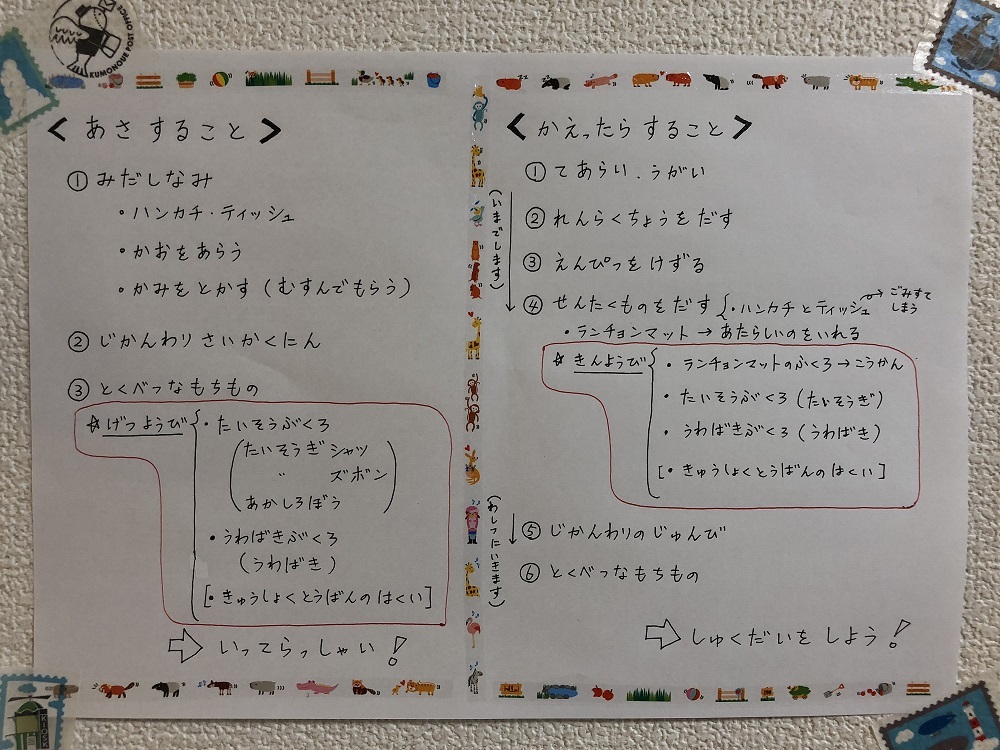 KUMONOUE POST OFFICE
< あさ すること >
① みだしなみ
・ハンカチ・ティッシュ
・かおをあらう
・かみをとかす (むすんでもらう)
② じかんわり さいかくにん
③ とくべつなもちもの
☆ げつようび
・たいそうぶくろ
(たいそうぎ シャツ
〃 ズボン
あかしろぼう)
・うわばきぶくろ
(うわばき)
[・きゅうしょくとうばんの はくい]
⇨ いってらっしゃい!
< かえったら すること >
① てあらい . うがい
(いまでします)
② れんらくちょうを だす
③ えんぴつを けずる
④ せんたくものを だす {・ハンカチ と ティッシュ → ごみすて
しまう
・ランチョンマット → あたらしいのをいれる
☆ きんようび
・ランチョンマットのふくろ→こうかん
・たいそうぶくろ (たいそうぎ)
・うわばきぶくろ (うわばき)
[・きゅうしょくとうばんの はくい]
(わしつにいきます)
⑤ じかんわりの じゅんび
⑥ とくべつな もちもの
⇨ しゅくだいを しよう!
KIOSK